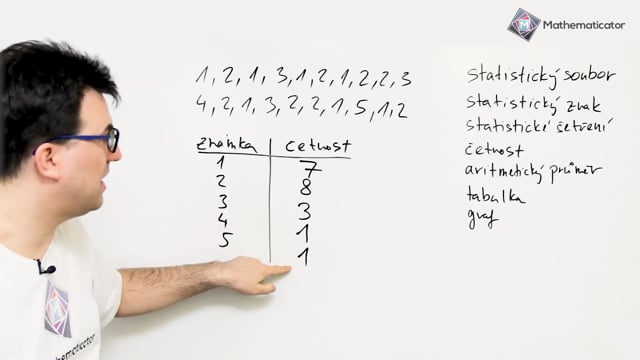 Mathematicator
1, 2, 1, 3, 1, 2, 1, 2, 2, 3
4, 2, 1, 3, 2, 2, 1, 5, 1, 2
známka četnost
1 7
2 8
3 3
4 1
5 1
statistický soubor
statistický znak
statistické šetření
četnost
aritmetický průměr
tabulka
graf
M
Mathematicator